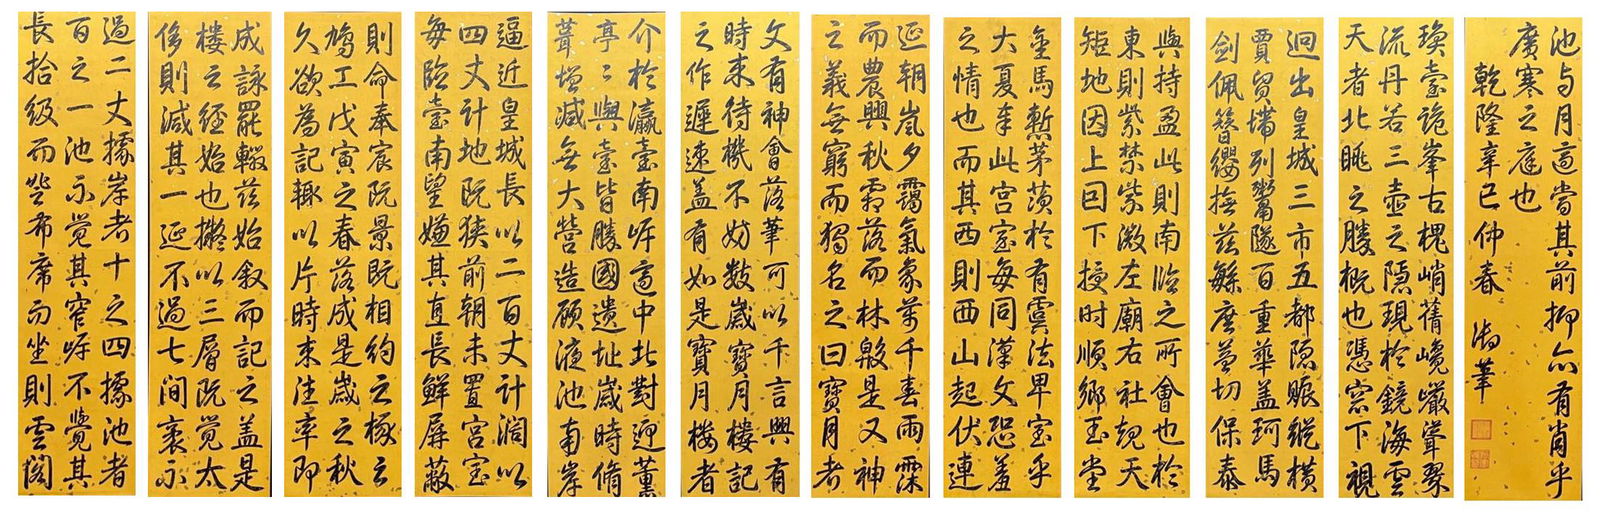 文有神會落筆可以千言興有
時來待機不妨數歲寶月樓記
之作遲速蓋有如是寶月樓者
介於瀛臺南岸適中北對迎薰
亭亭與臺皆勝國遺址歲時脩
葺增減無大營造顧液池南岸
逼近皇城長以二百丈計闊以
四丈計地既狹前朝未置宮室
每臨臺南望嫌其直長鮮屏蔽
則命奉宸既景既相約之椓之
鳩工戊寅之春落成是歲之秋
久欲為記輒以片時來往率即
成詠罷輟茲始敘而記之蓋是
樓之經始也擬以三層既覺太
侈則減其一延不過七間袤不
過二丈據岸者十之四據池者
百之一池不覺其窄岸不覺其
長拾級而登布席而坐則雲閣
瓊臺詭峯古槐峭蒨巉巖聳翠
流丹若三壺之隱現於鏡海雲
天者北眺之勝概也憑窗下視
迥出皇城三市五都隱賑縱橫
賈貿墆列鬻隧百重華蓋珂馬
劍佩簪纓撫茲繇庶益切保泰
與持盈此則南臨之所會也於
東則紫禁紫微左廟右社規天
矩地因上因下授時順鄉玉堂
金馬塹茅茨於有虞法卑室乎
大夏奉此宮室每同漢文恐羞
之情也而其西則西山起伏連
延朝嵐夕靄氣象萬千春雨霖
而農興秋霜落而林殷是又神
之義無窮而獨名之曰寶月者
池與月適當其前抑亦有肖乎
廣寒之庭也
乾隆辛巳仲春 御筆